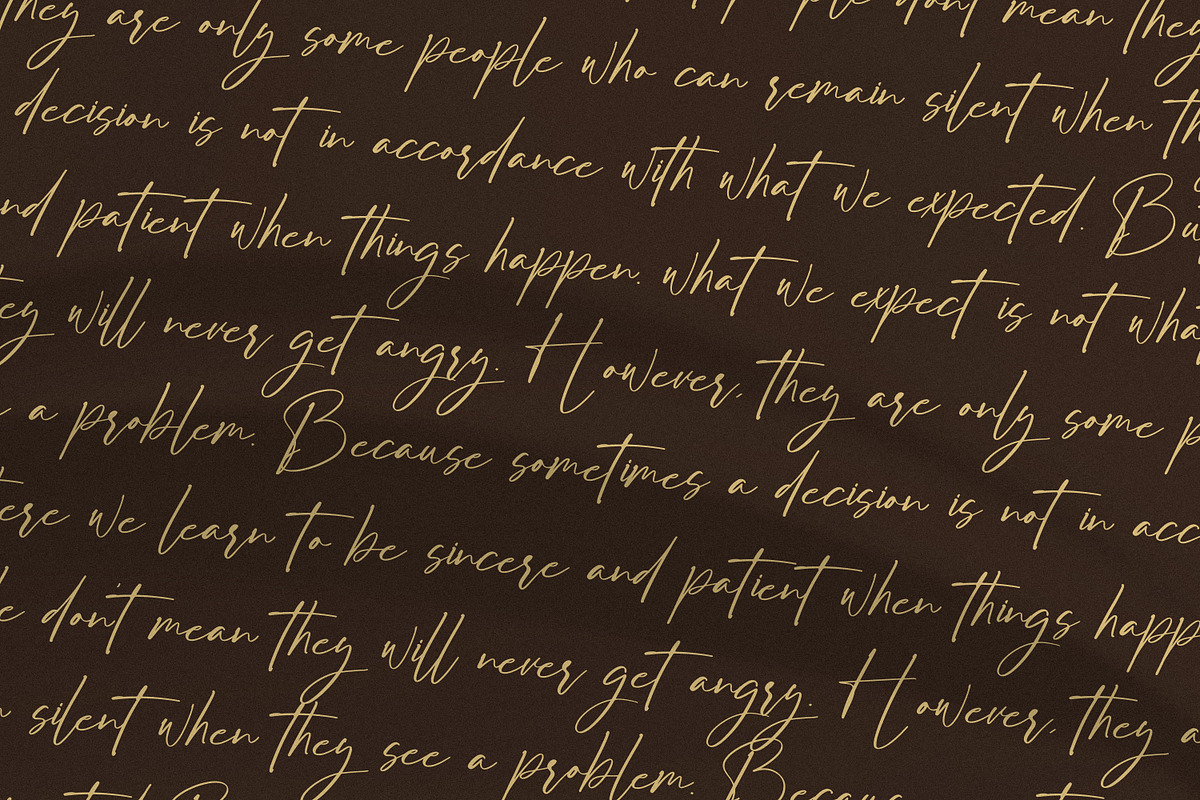 don't mean they
they are only some people who can remain silent when
decision is not in accordance with what we expected. Bu
and patient when things happen. what we expect is not wha
ey will never get angry. However, they are only some p
a problem. Because sometimes a decision is not in acc
ere we learn to be sincere and patient when things happ
e don't mean they will never get angry. However, they a
silent when they see a problem. Because